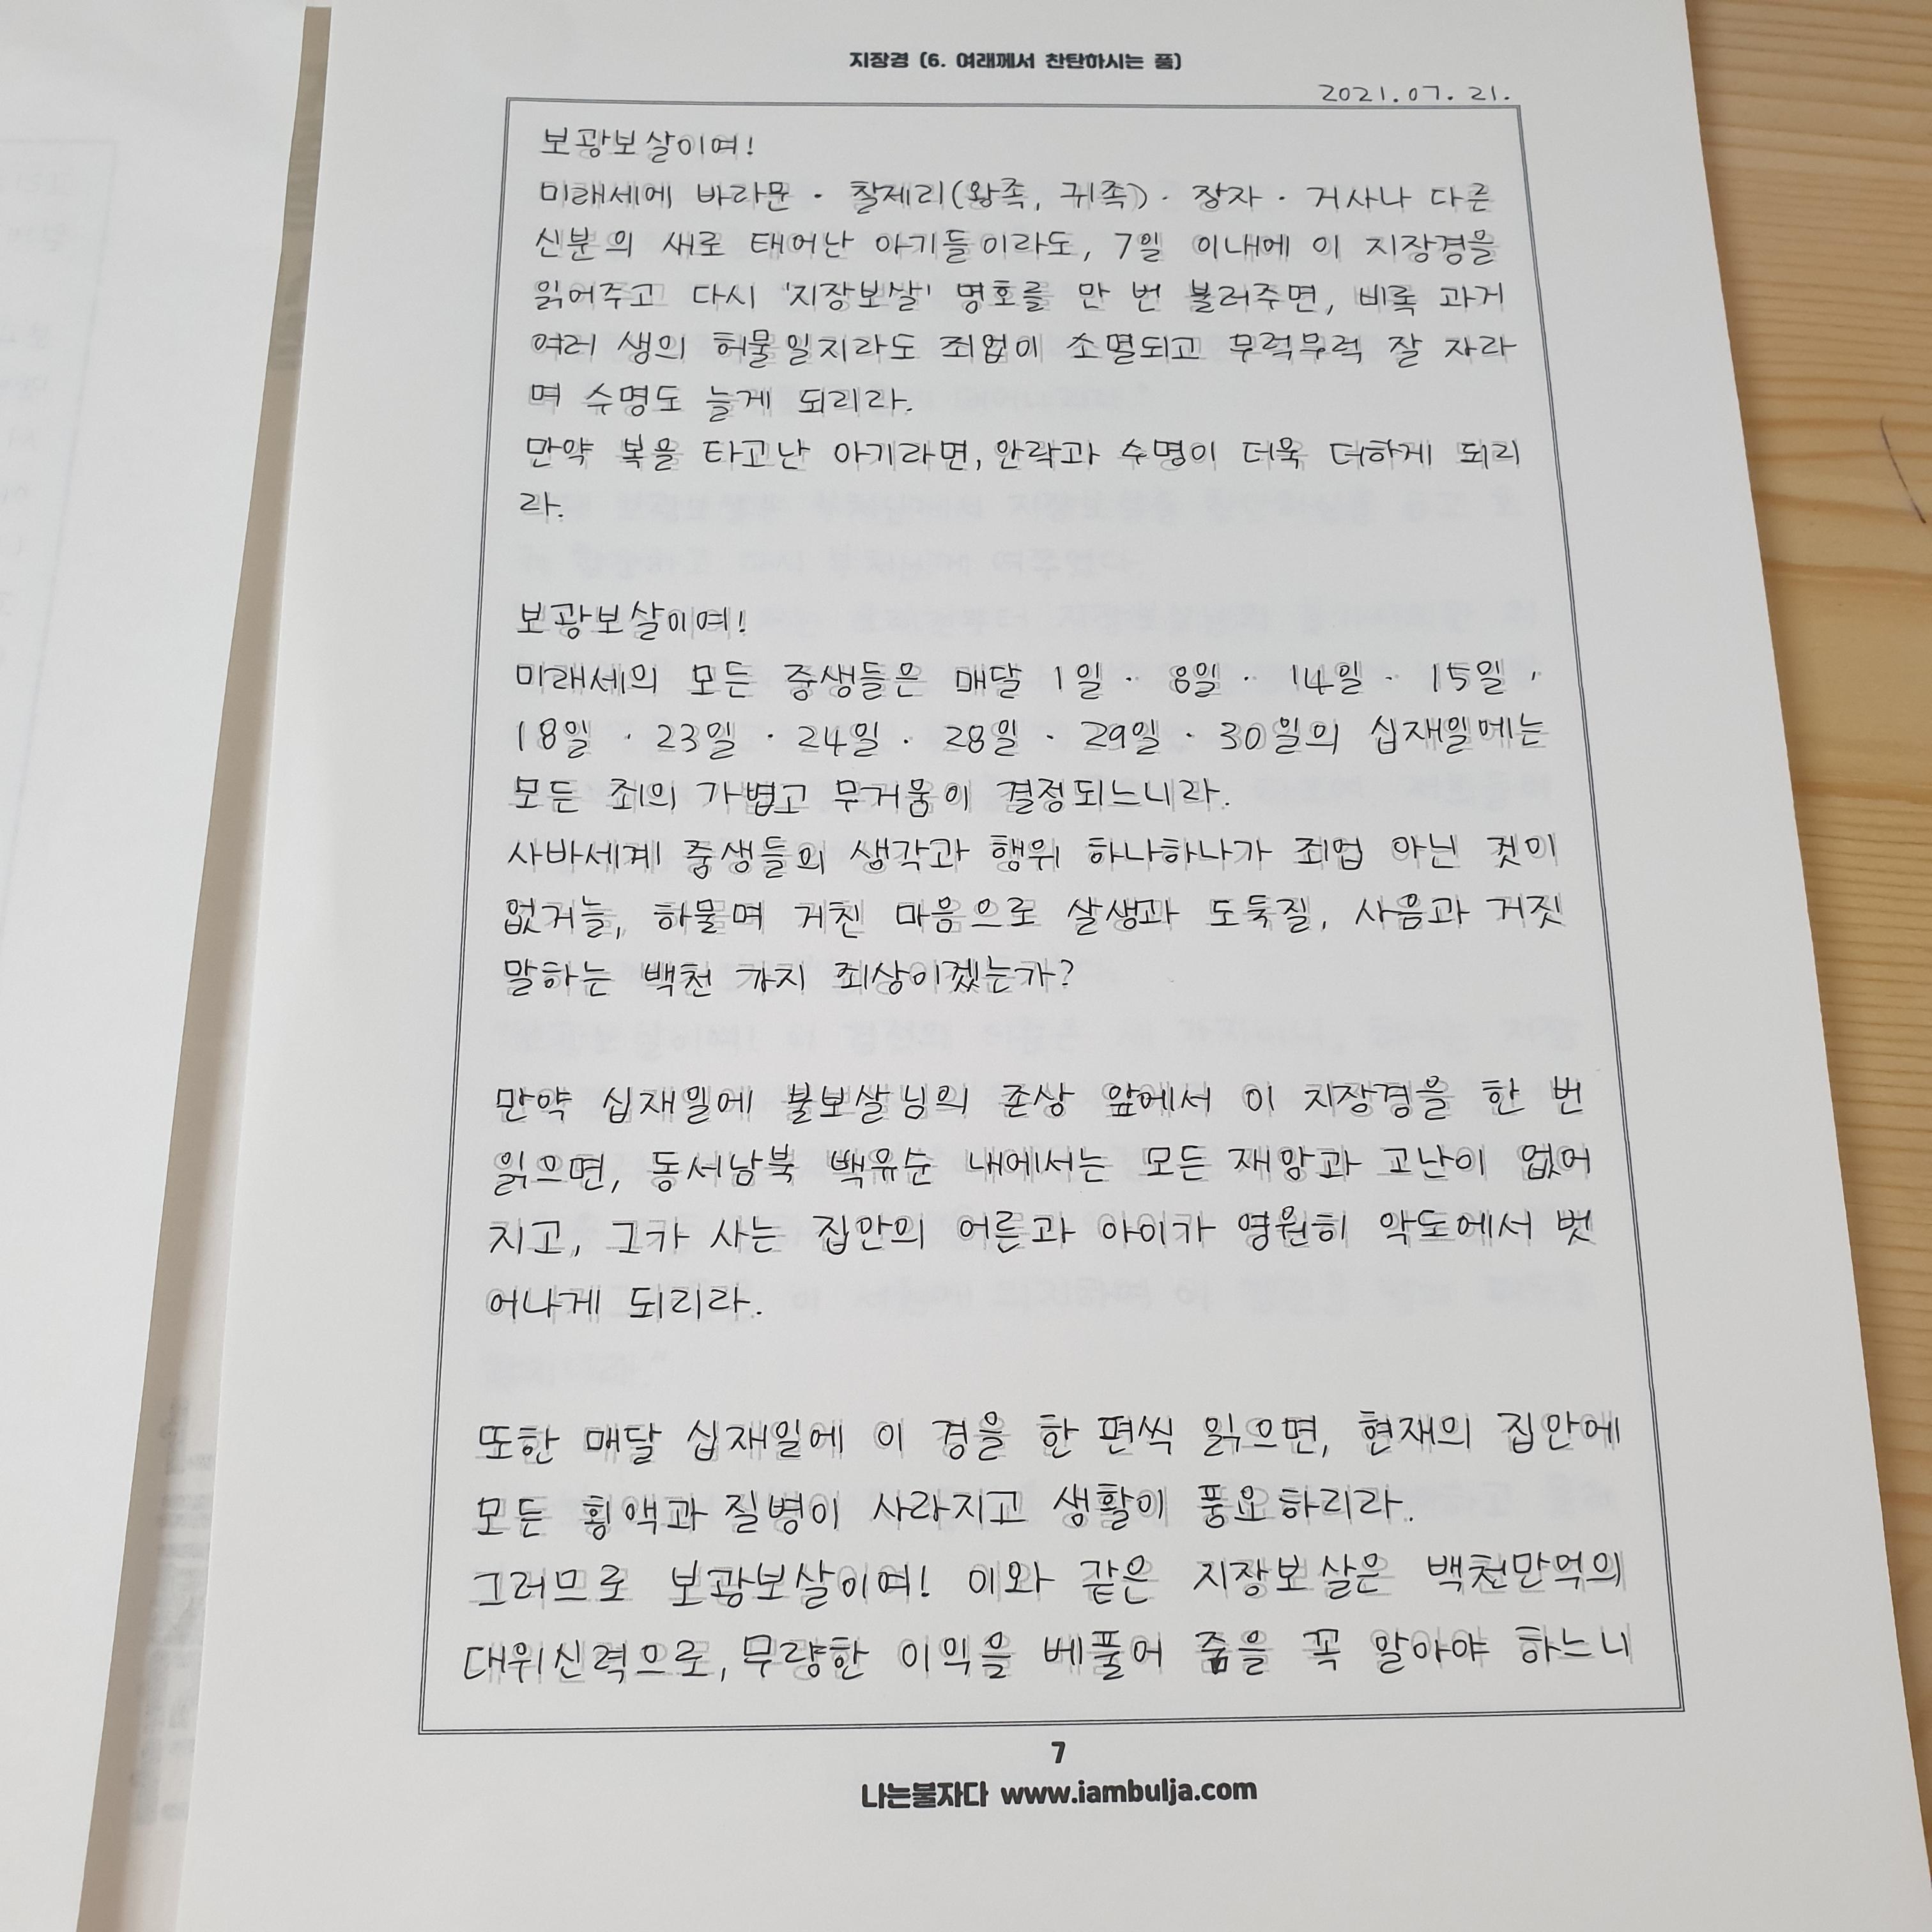 지장경 (6. 여래께서 찬탄하시는 품)
2021.07.21.
보광보살이여!
미래세에 바라문 · 찰제리(왕족, 귀족) · 장자 · 거사나 다른
신분의 새로 태어난 아기들이라도, 7일 이내에 이 지장경을
읽어주고 다시 '지장보살' 명호를 만 번 불러주면, 비록 과거
여러 생의 허물일지라도 죄업이 소멸되고 무럭무럭 잘 자라
며 수명도 늘게 되리라.
만약 복을 타고난 아기라면, 안락과 수명이 더욱 더하게 되리
라.
보광보살이여!
미래세의 모든 중생들은 매달 1일 · 8일 · 14일 · 15일 ·
18일 · 23일 · 24일 · 28일 · 29일 · 30일의 십재일에는
모든 죄의 가볍고 무거움이 결정되느니라.
사바세계 중생들의 생각과 행위 하나하나가 죄업 아닌 것이
없거늘, 하물며 거친 마음으로 살생과 도둑질, 사음과 거짓
말하는 백천 가지 죄상이겠는가?
만약 십재일에 불보살님의 존상 앞에서 이 지장경을 한 번
읽으면, 동서남북 백유순 내에서는 모든 재앙과 고난이 없어
지고, 그가 사는 집안의 어른과 아이가 영원히 악도에서 벗
어나게 되리라.
또한 매달 십재일에 이 경을 한 편씩 읽으면, 현재의 집안에
모든 횡액과 질병이 사라지고 생활이 풍요하리라.
그러므로 보광보살이여! 이와 같은 지장보살은 백천만억의
대위신력으로, 무량한 이익을 베풀어 줌을 꼭 알아야 하느니
7
나는불자다 www.iambulja.com